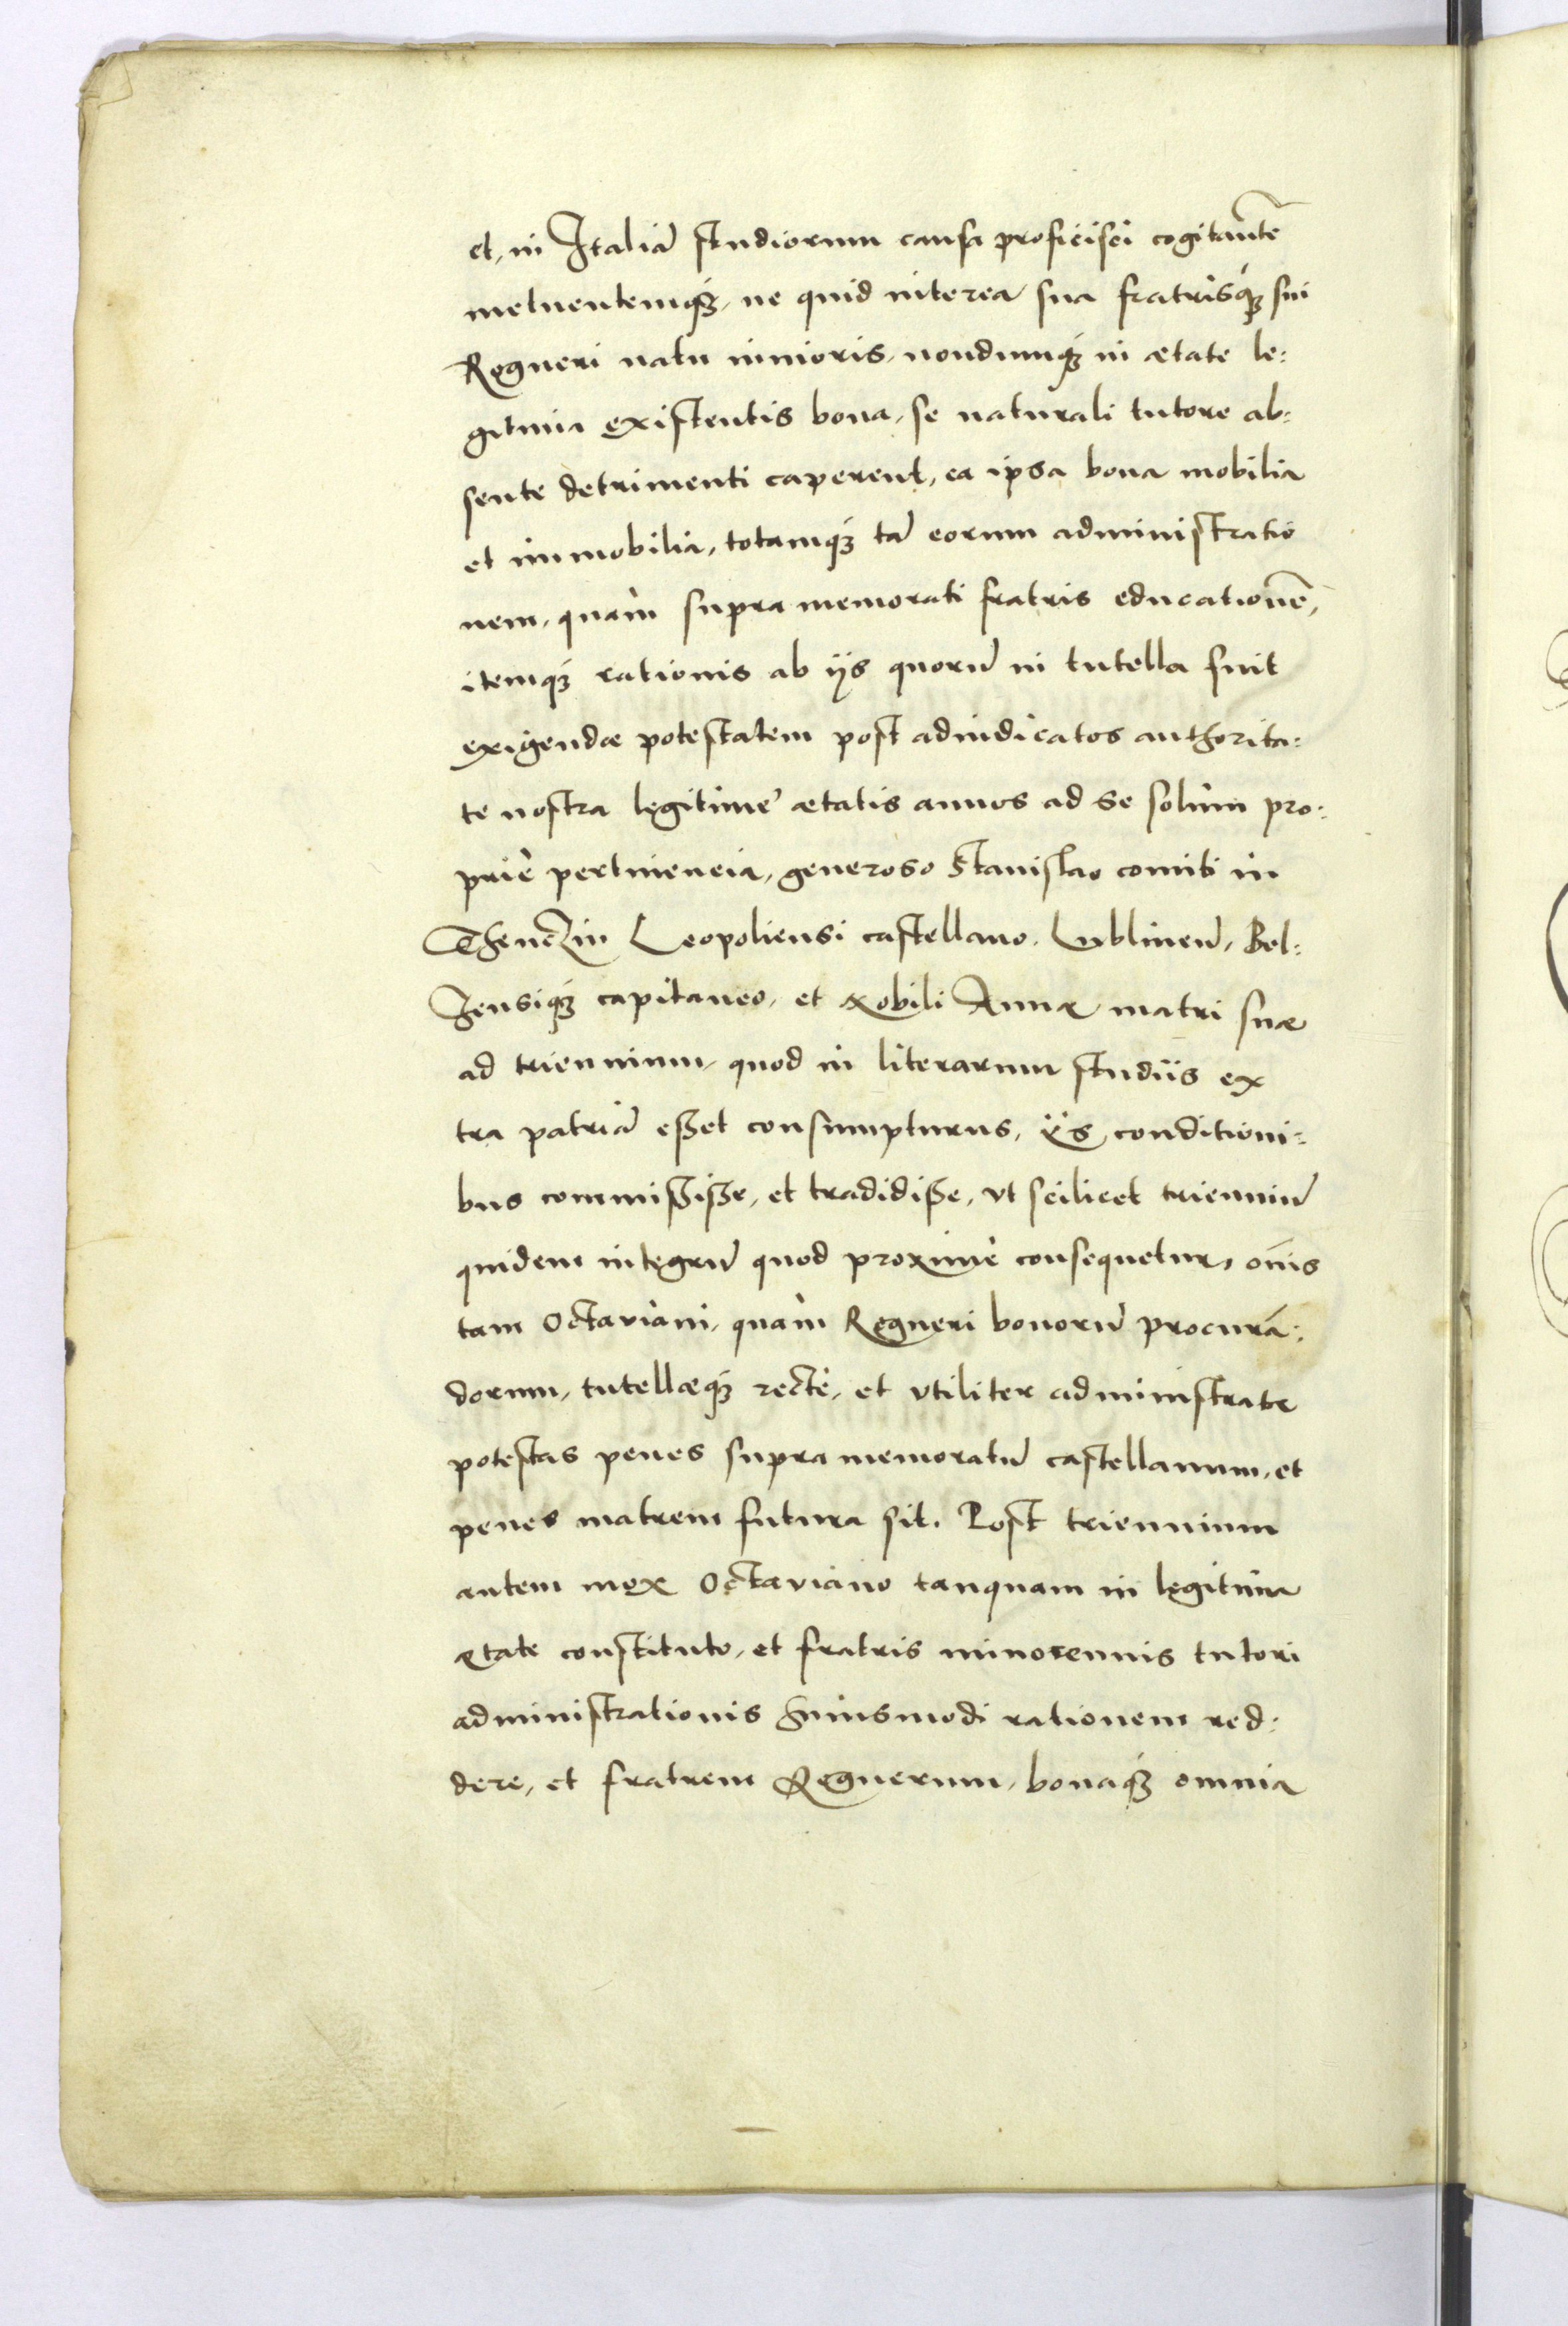 et, in Italiã studiorum causa proficisci cogitantẽ
metuentemq́ꝫ, ne quid interea sua fratrisq́ꝫ sui
Regneri natu iunioris, nondumq́ꝫ in ætate le:
gitima existentis bona, se naturali tutore ab:
sente detrimenti caperent, ea ipsa bona mobilia
et immobilia, totamq́ꝫ tã eorum administratio
nem, quàm supra memorati fratris educationẽ,
itemq́ꝫ rationis ab ijs quorũ in tutella fuit
exigendæ potestatem post adiudicatos authorita:
te nostra legitimę ætatis annos ad se solùm pro:
priè pertinencia, generoso Stanislao comiti in
Thenczin Leopoliensi castellano. Lublineñ, Bel:
zensiq́ꝫ capitaneo, et nobili Annæ matri suæ
ad triennium, quod in literarum studiis ex
tra patriã esset consumpturus, ijs conditioni:
bus commisisse, et tradidisse, vt scilicet trienniũ
quidem integrũ quod proximè consequetur, om̃is
tam Octaviani, quàm Regneri bonorũ procurã:
dorum, tutellæq́ꝫ rectè, et vtiliter administratæ
potestas penes supra memoratũ castellanum, et
penes matrem futura sit. Post triennium
autem mox Octaviano tanquam in legitima
ętate constituto, et fratris minorennis tutori
administrationis huiusmodi rationem red:
dere, et fratrem Regnerum, bonaq́ꝫ omnia